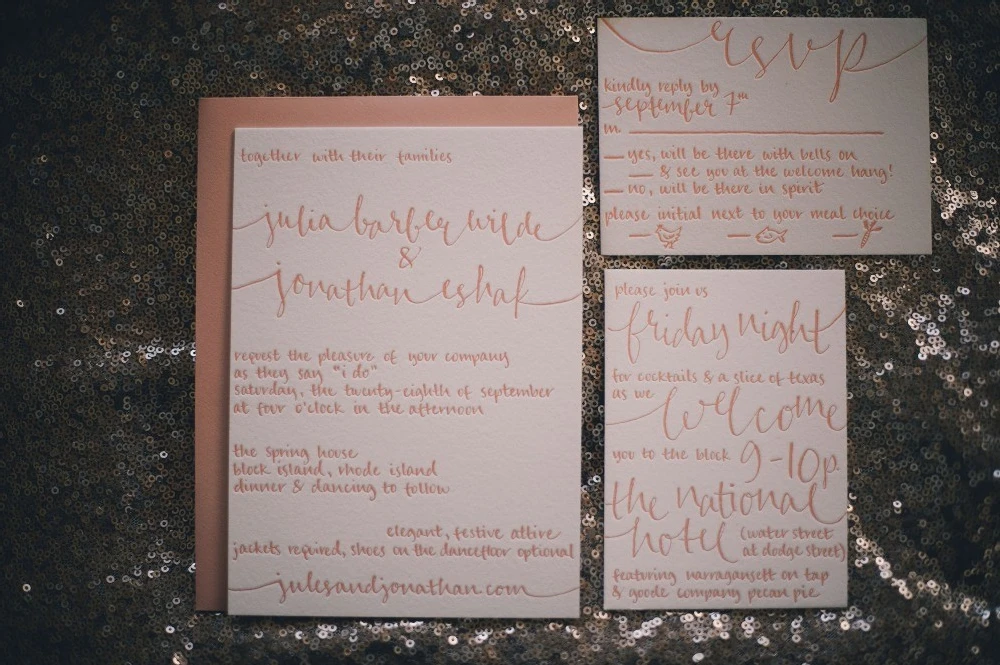 together with their families
julia barber wilde
&
jonathan eshak
request the pleasure of your company
as they say "i do"
saturday, the twenty-eighth of september
at four o'clock in the afternoon
the spring house
block island, rhode island
dinner & dancing to follow
elegant, festive attire
jackets required, shoes on the dancefloor optional
julesandjonathan.com
rsvp
kindly reply by
september 7th
m
yes, will be there with bells on
& see you at the welcome hang!
no, will be there in spirit
please initial next to your meal choice
please join us
friday night
for cocktails & a slice of texas
as we
welcome
you to the block 9-10p.
the national
hotel (water street
at dodge street)
featuring narragansett on tap
& goode company pecan pie